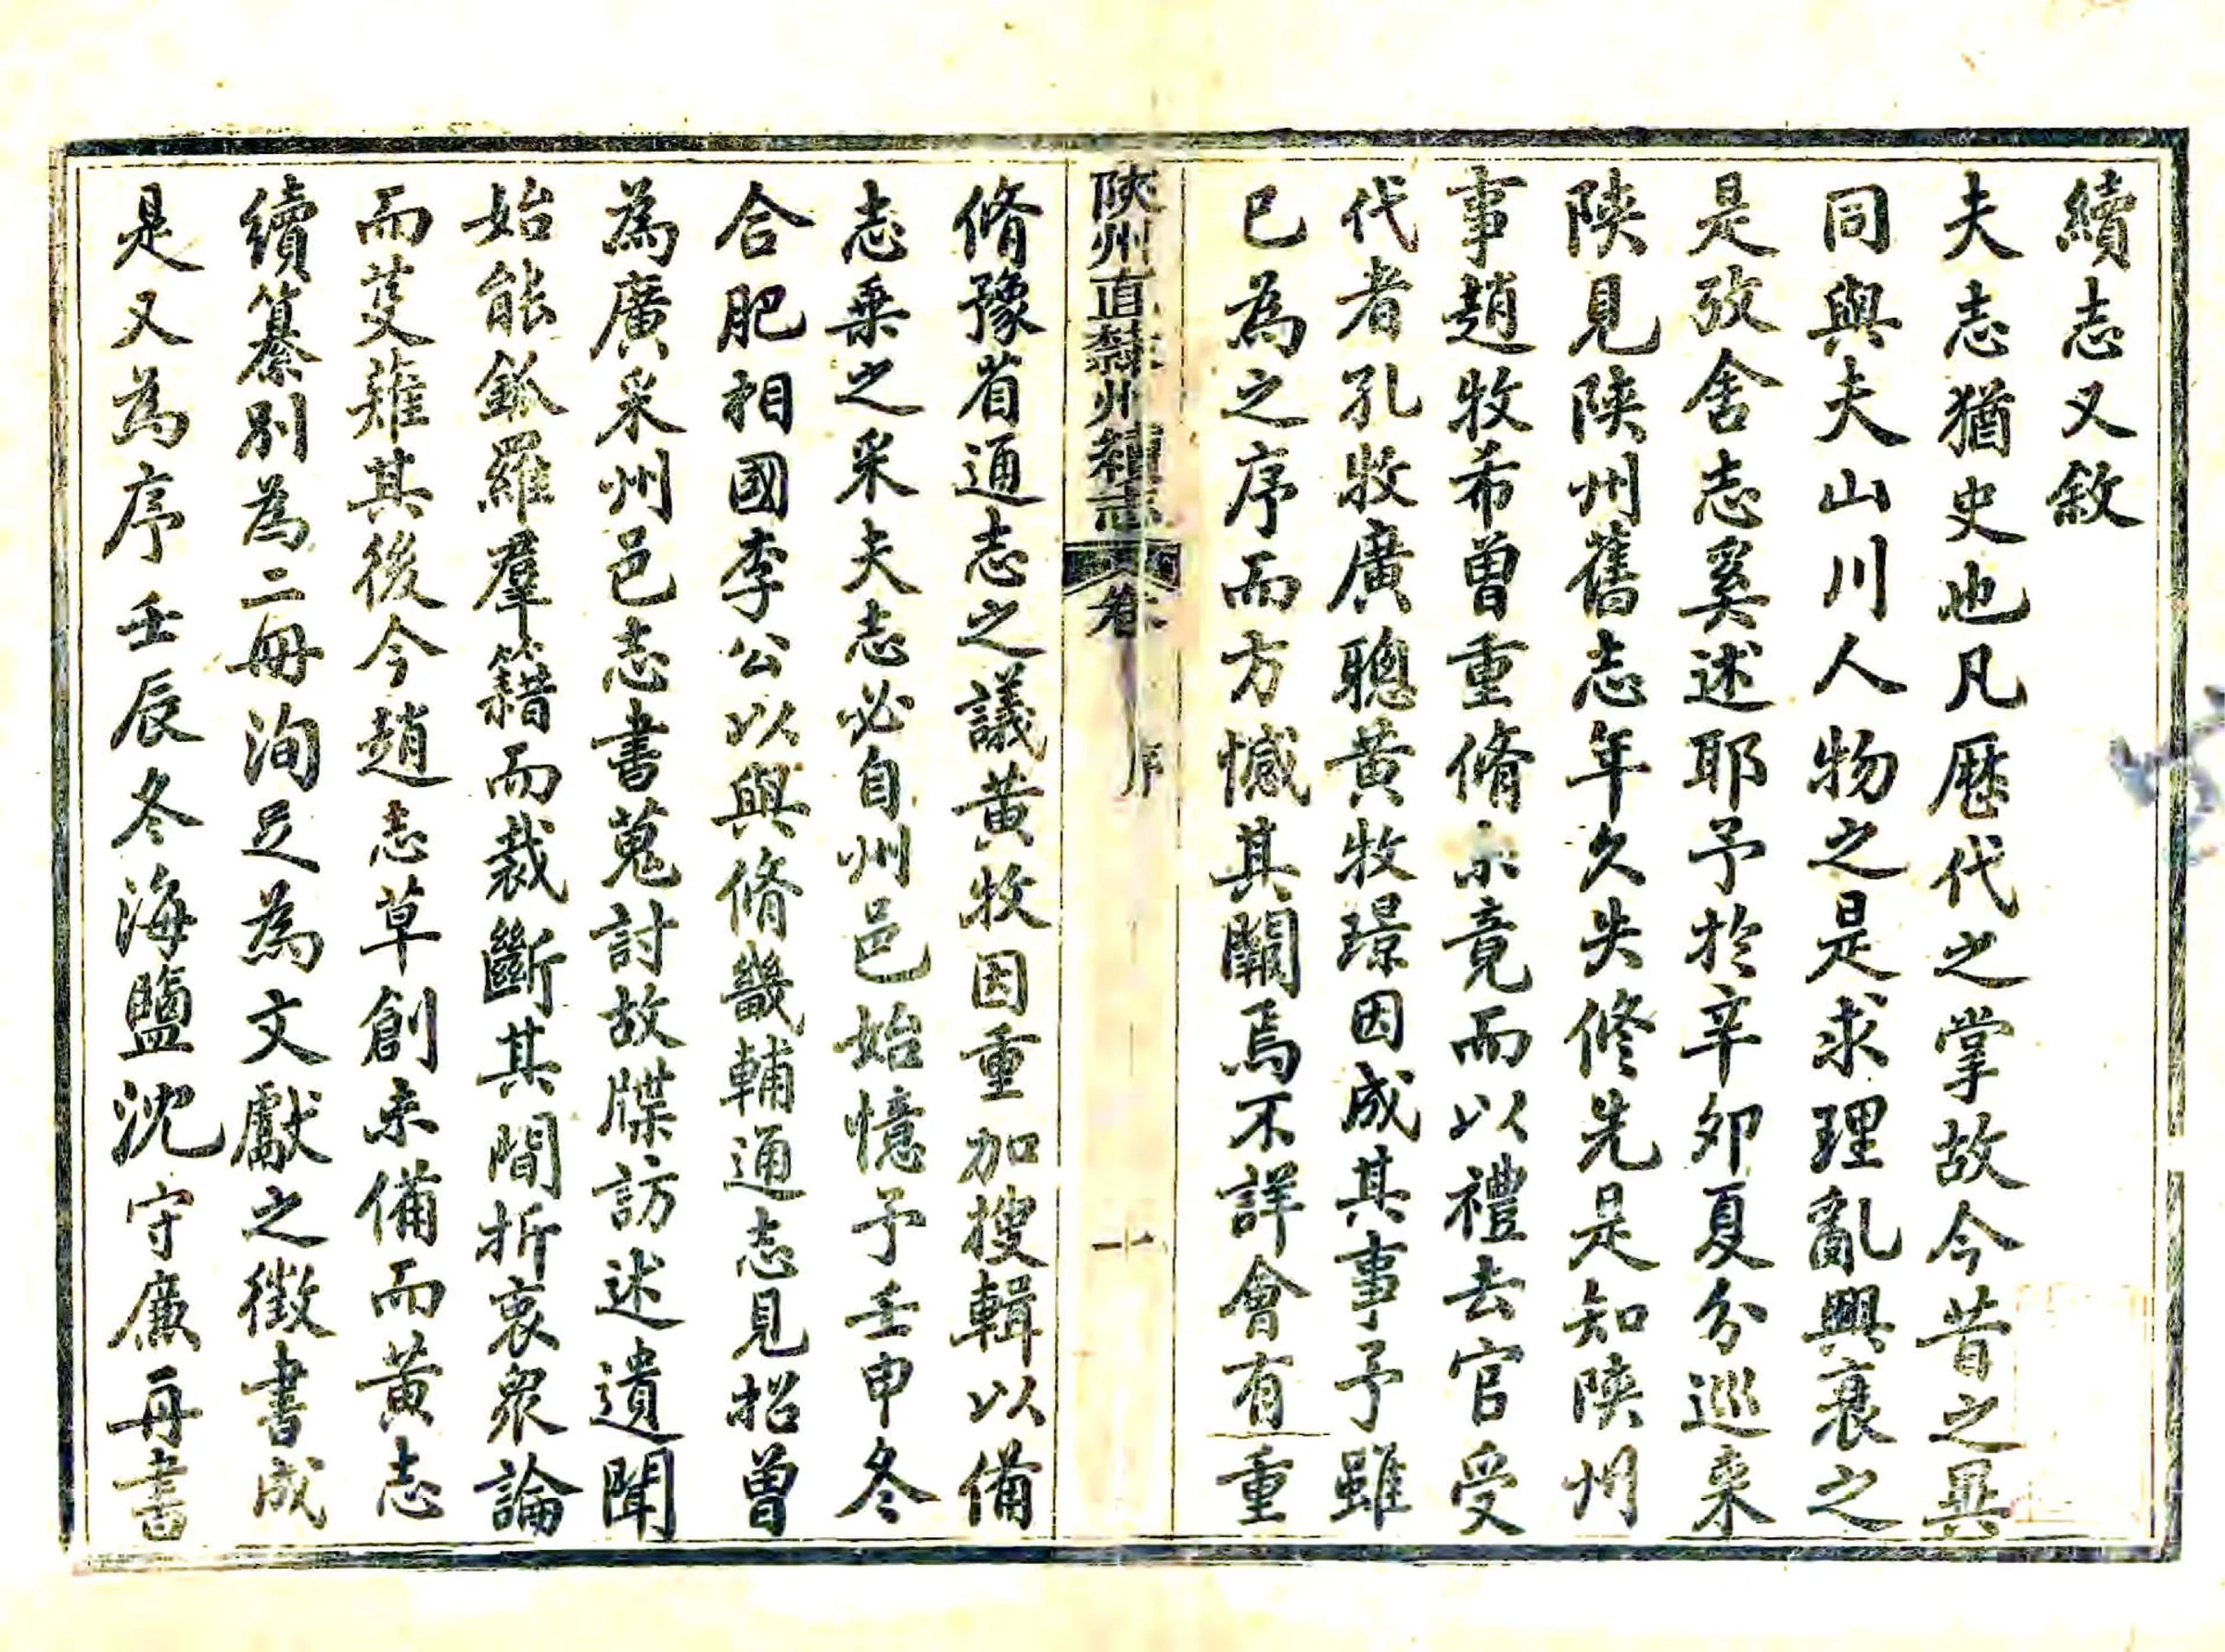 續志又敘
夫志猶史也凡歷代之掌故今昔之異
同與夫山川人物之是求理亂興衰之
是攷舍志奚述耶予於辛卯夏分巡來
陝見陝州舊志年久失修先是知陝州
事趙牧希曾重脩未竟而以禮去官受
代者孔牧廣聰黃牧璟因成其事予雖
已為之序而方憾其闕焉不詳會有重
陝州直隸州續志 卷 序 一
脩豫省通志之議黃牧因重加搜輯以備
志乘之采夫志必自州邑始憶予壬申冬
合肥相國李公以興脩畿輔通志見招曾
為廣采州邑志書蒐討故牒訪述遺聞
始能鉤羅羣籍而裁斷其間折衷衆論
而芟薙其後今趙志草創未備而黃志
續纂別為二冊洵足為文獻之徵書成
是又為序壬辰冬海鹽沈守廉再書